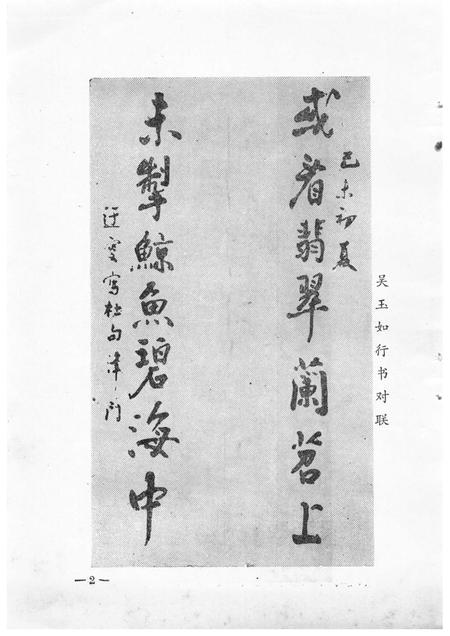 吴玉如行书对联
己未初夏
或看翡翠蘭苕上
未掣鯨魚碧海中
迂叟寫杜句津门
—2—